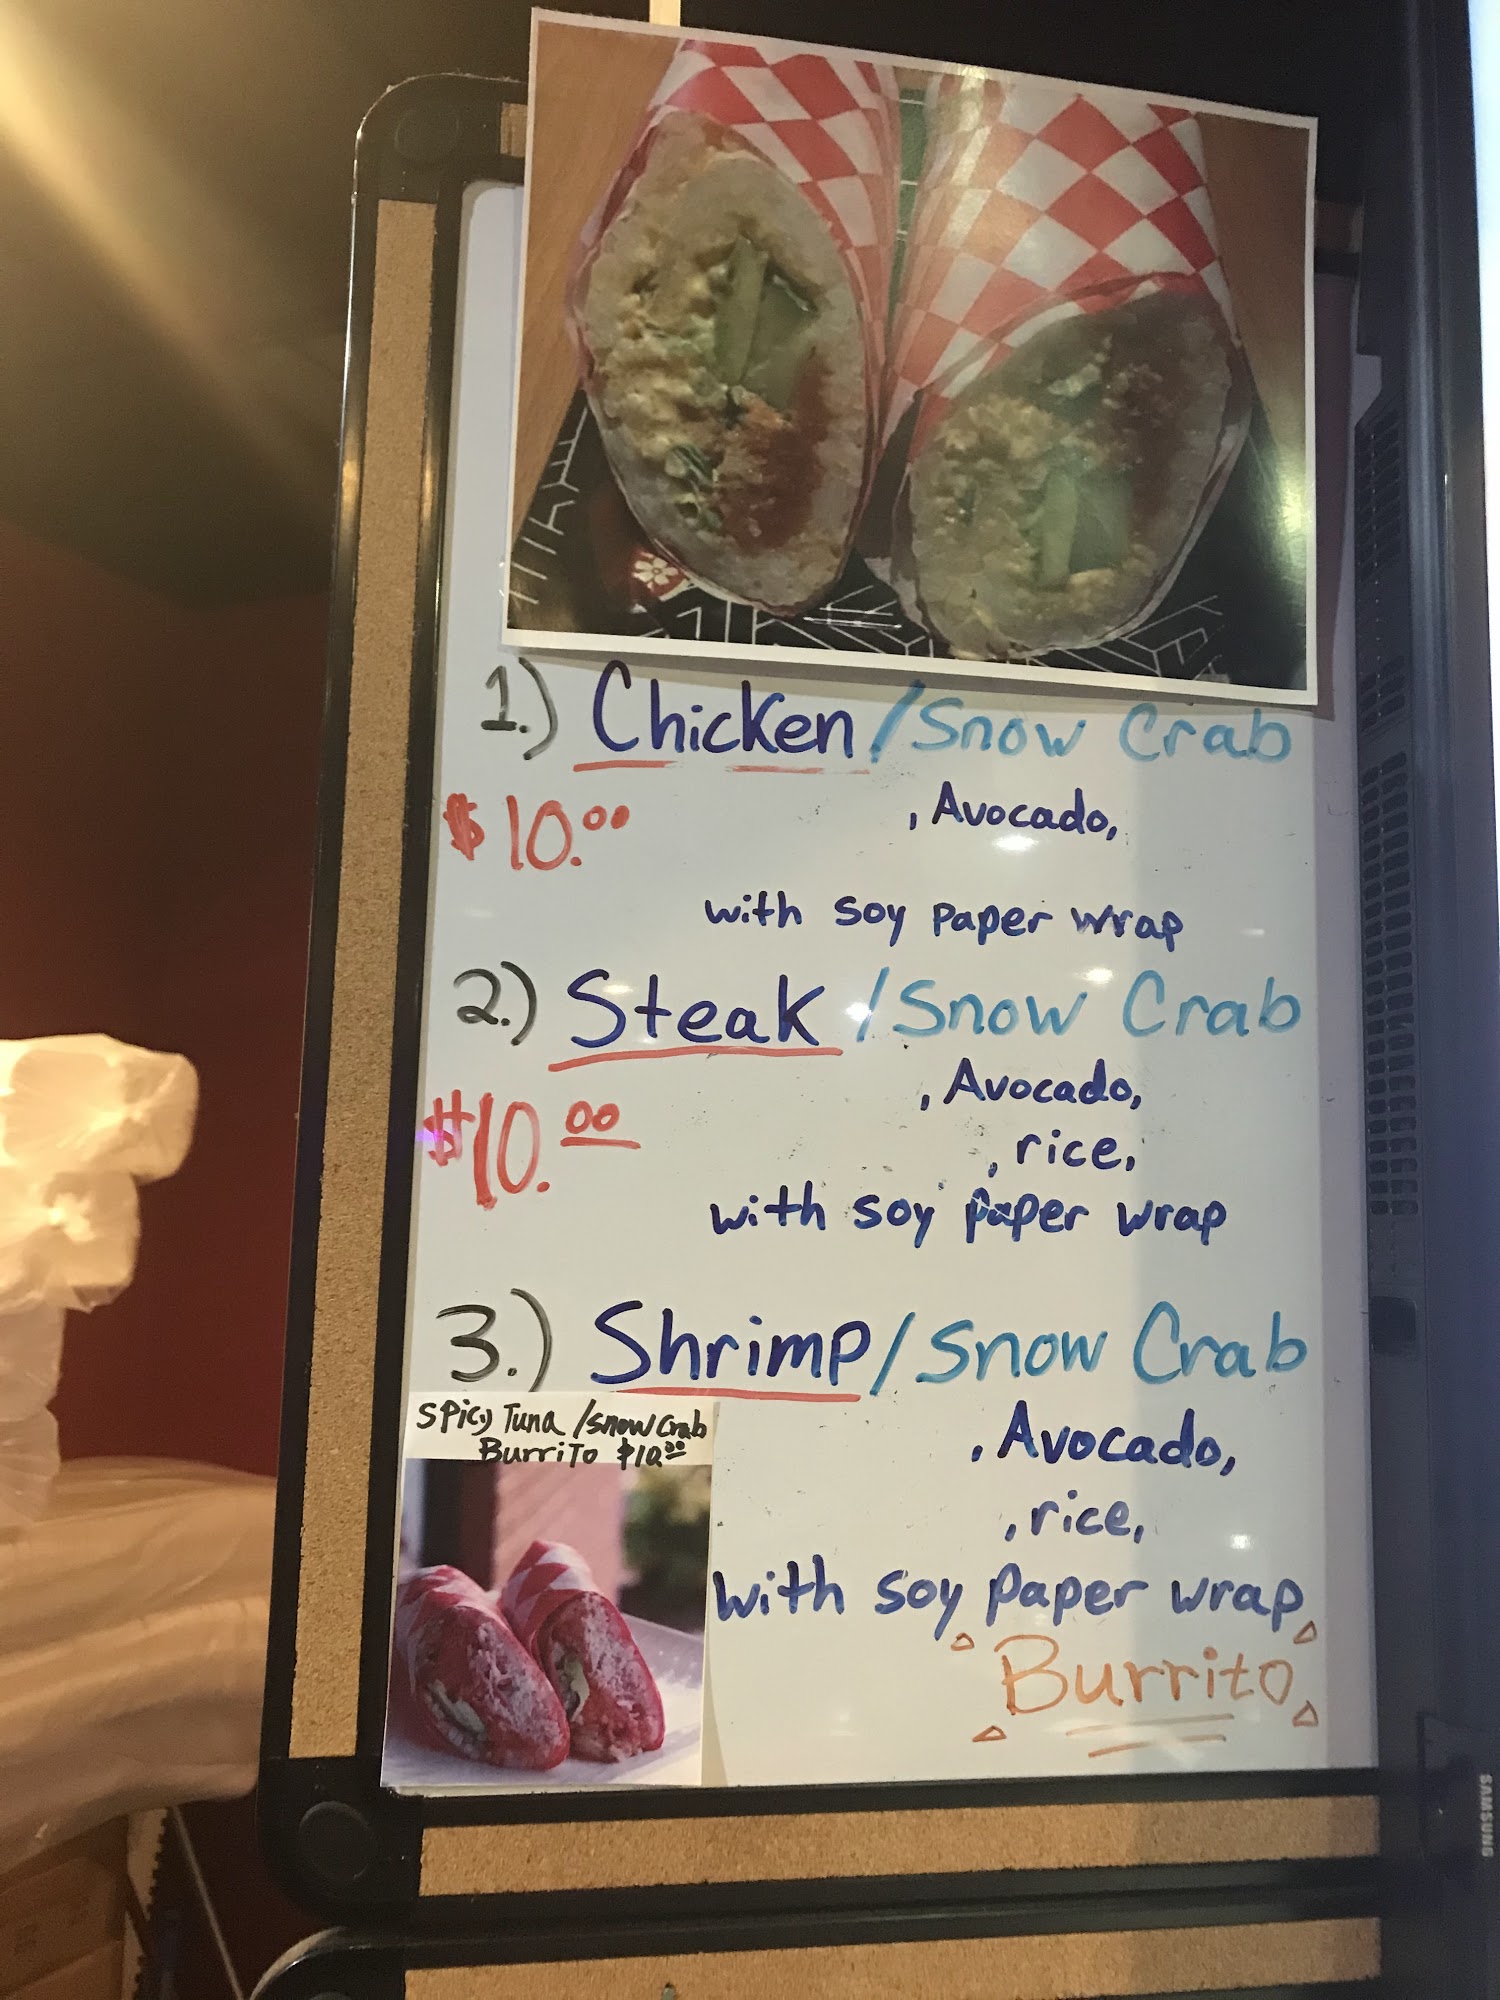 1.) Chicken/Snow Crab
$10.00
, Avocado,
with soy paper wrap
2.) Steak /Snow Crab
$10.00
, Avocado,
, rice,
with soy paper wrap
3.) Shrimp/Snow Crab
, Avocado,
, rice,
with soy paper wrap
Burrito
Spicy Tuna /snow Crab
Burrito $10.00
SAMSUNG